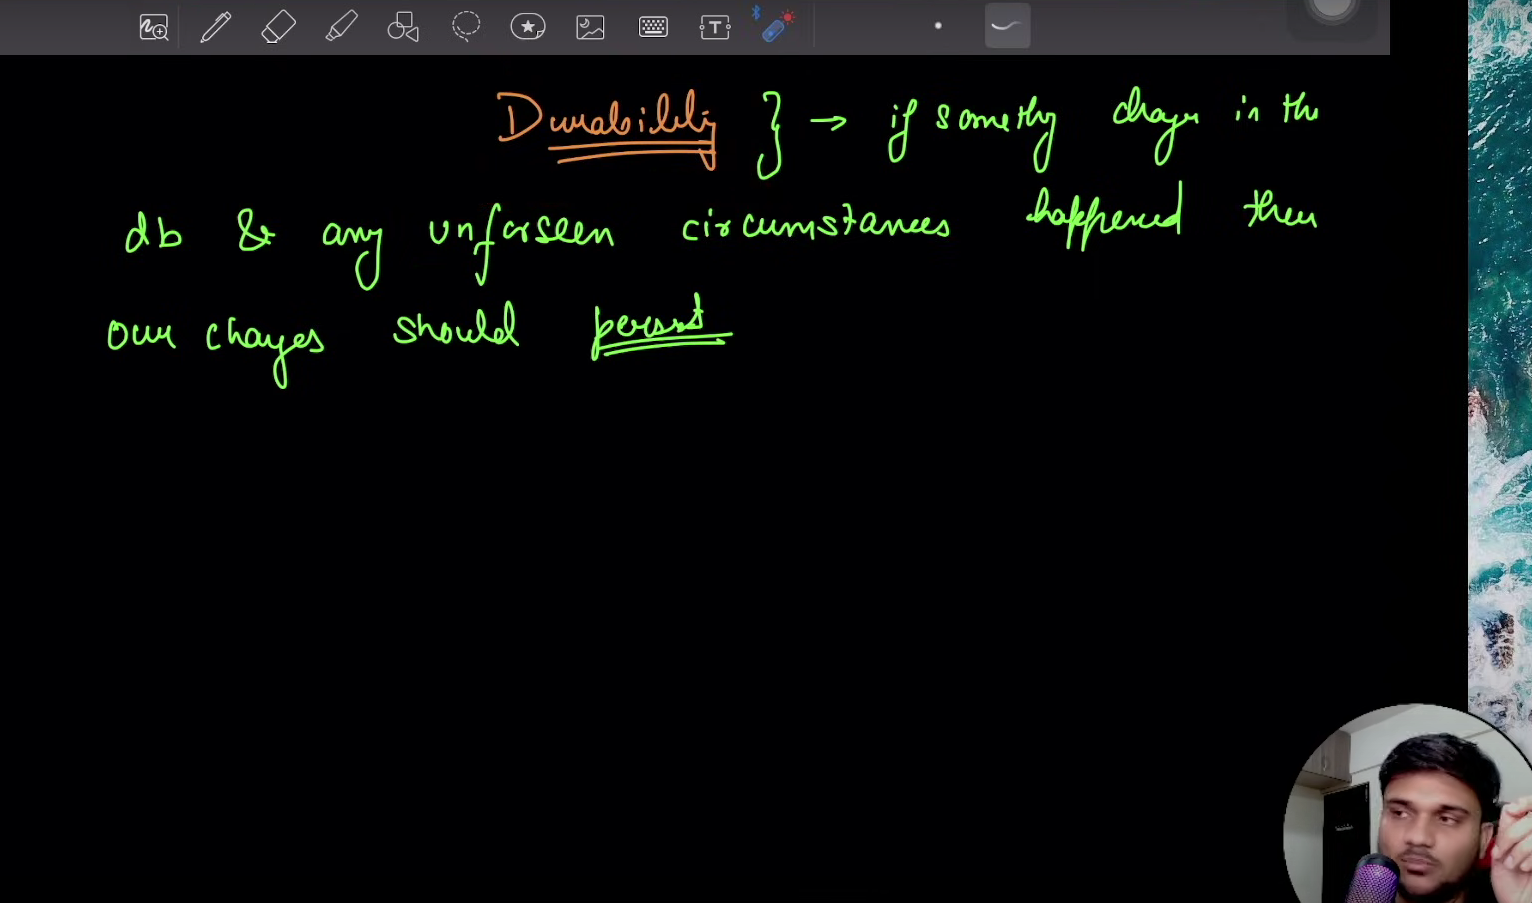 Durability } → if somethg changes in the
db & any unforseen circumstances happened then
our changes should persist